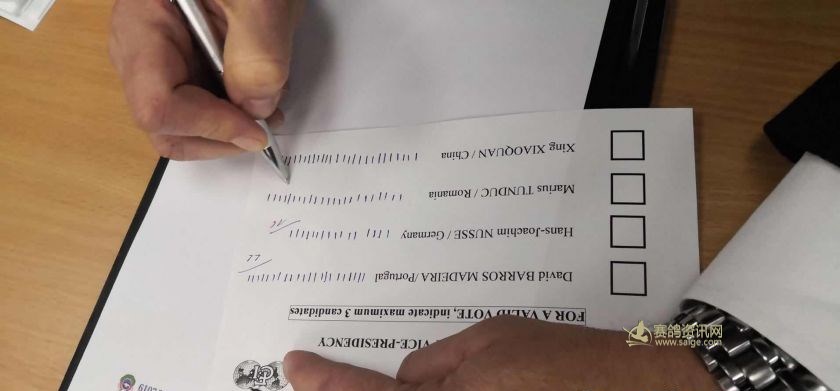 VICE-PRESIDENCY
FOR A VALID VOTE, indicate maximum 3 candidates
David BARROS MADEIRA/Portugal
Hans-Joachim NUSSE / Germany
Marius TUNDUC / Romania
Xing XIAOQUAN / China
2019
赛鸽资讯网
www.saige.com